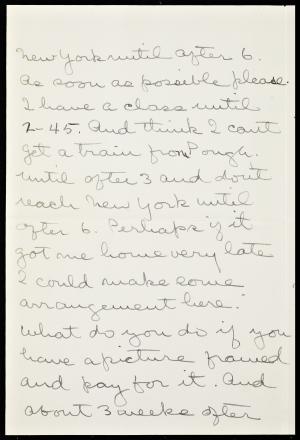 New York until after 6.
As soon as possible please.
I have a class until
2-45. And think I can't
get a train from Pough.
until after 3 and don't
reach New York until
after 6. Perhaps if it
got me home very late
I could make some
arrangement here.
What do you do if you
have a picture framed
and pay for it. And
about 3 weeks after